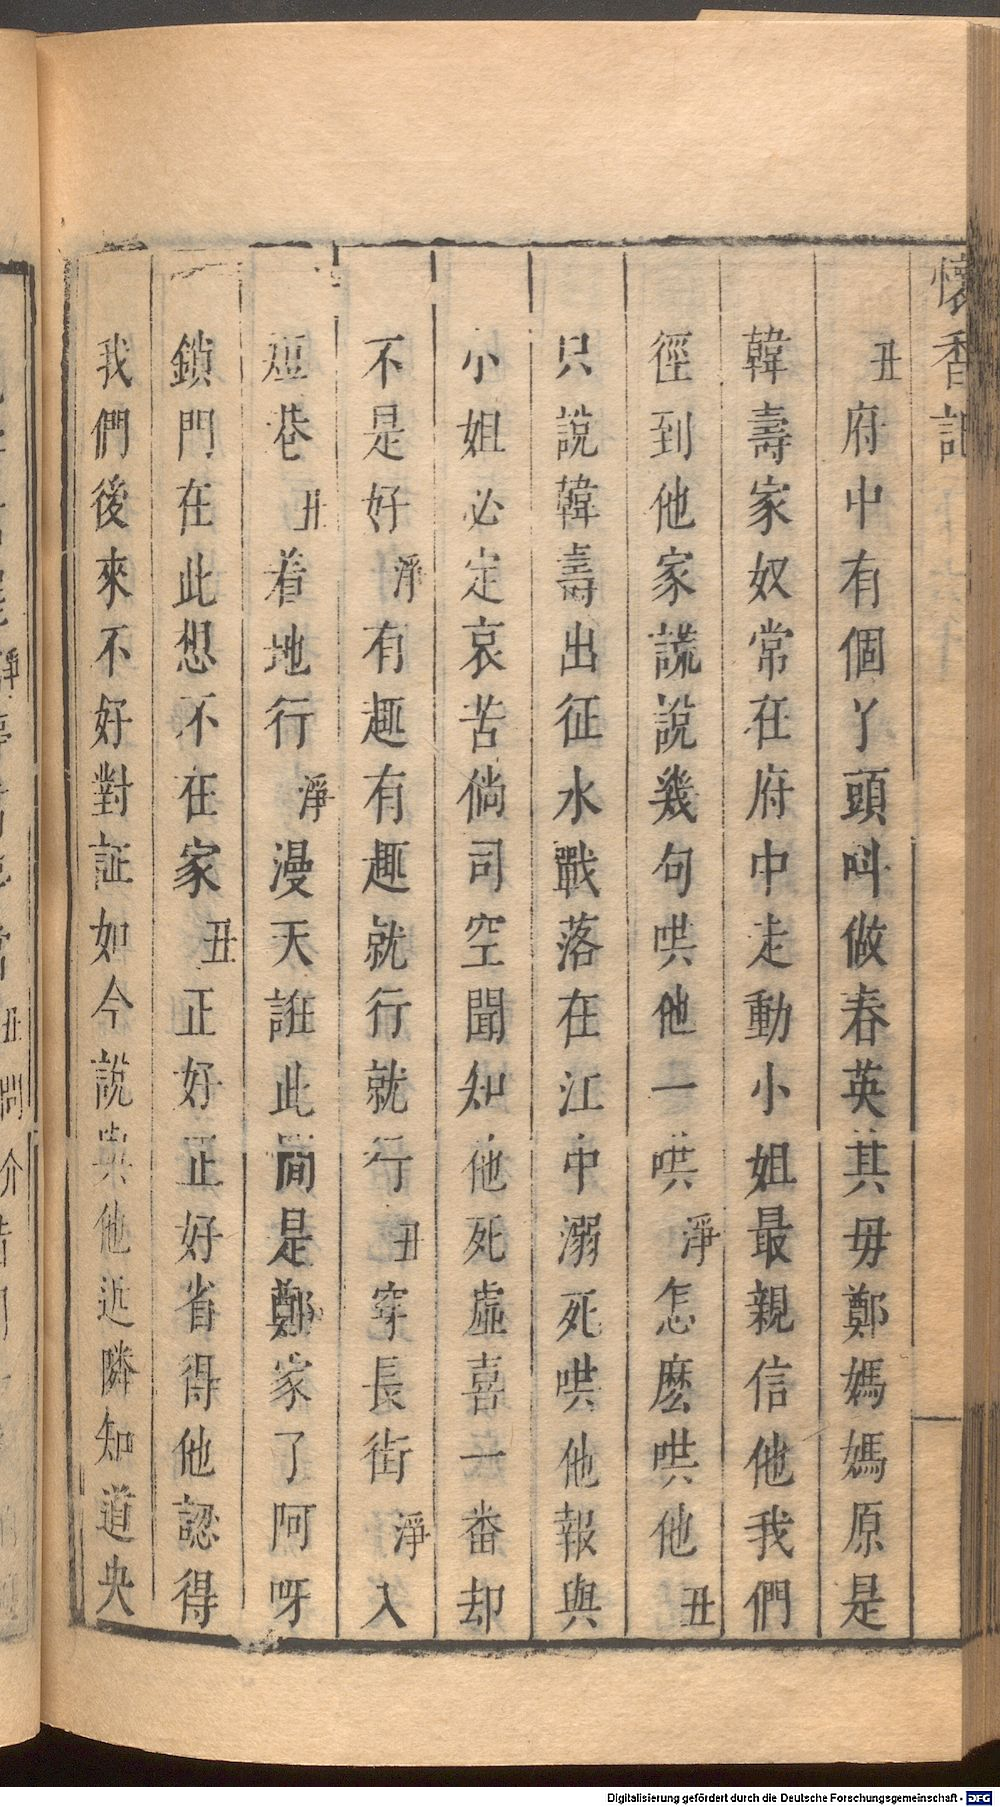 懷香記
丑府中有個丫頭呌做春英其毋鄭媽媽原是
韓壽家奴常在府中走動小姐最親信他我們
徑到他家謊說幾句哄他一哄淨怎麽哄他丑
只說韓壽出征水戰落在江中溺死哄他報與
小姐必定哀苦倘司空聞知他死虛喜一番却
不是好淨有趣有趣就行就行丑穿長街淨入
短巷丑着地行淨漫天誑此間是鄭家了阿呀
鎖門在此想不在家丑正好正好省得他認得
我們後來不好對証如今說與他近隣知道央
Digitalisierung gefördert durch die Deutsche Forschungsgemeinschaft - DFG